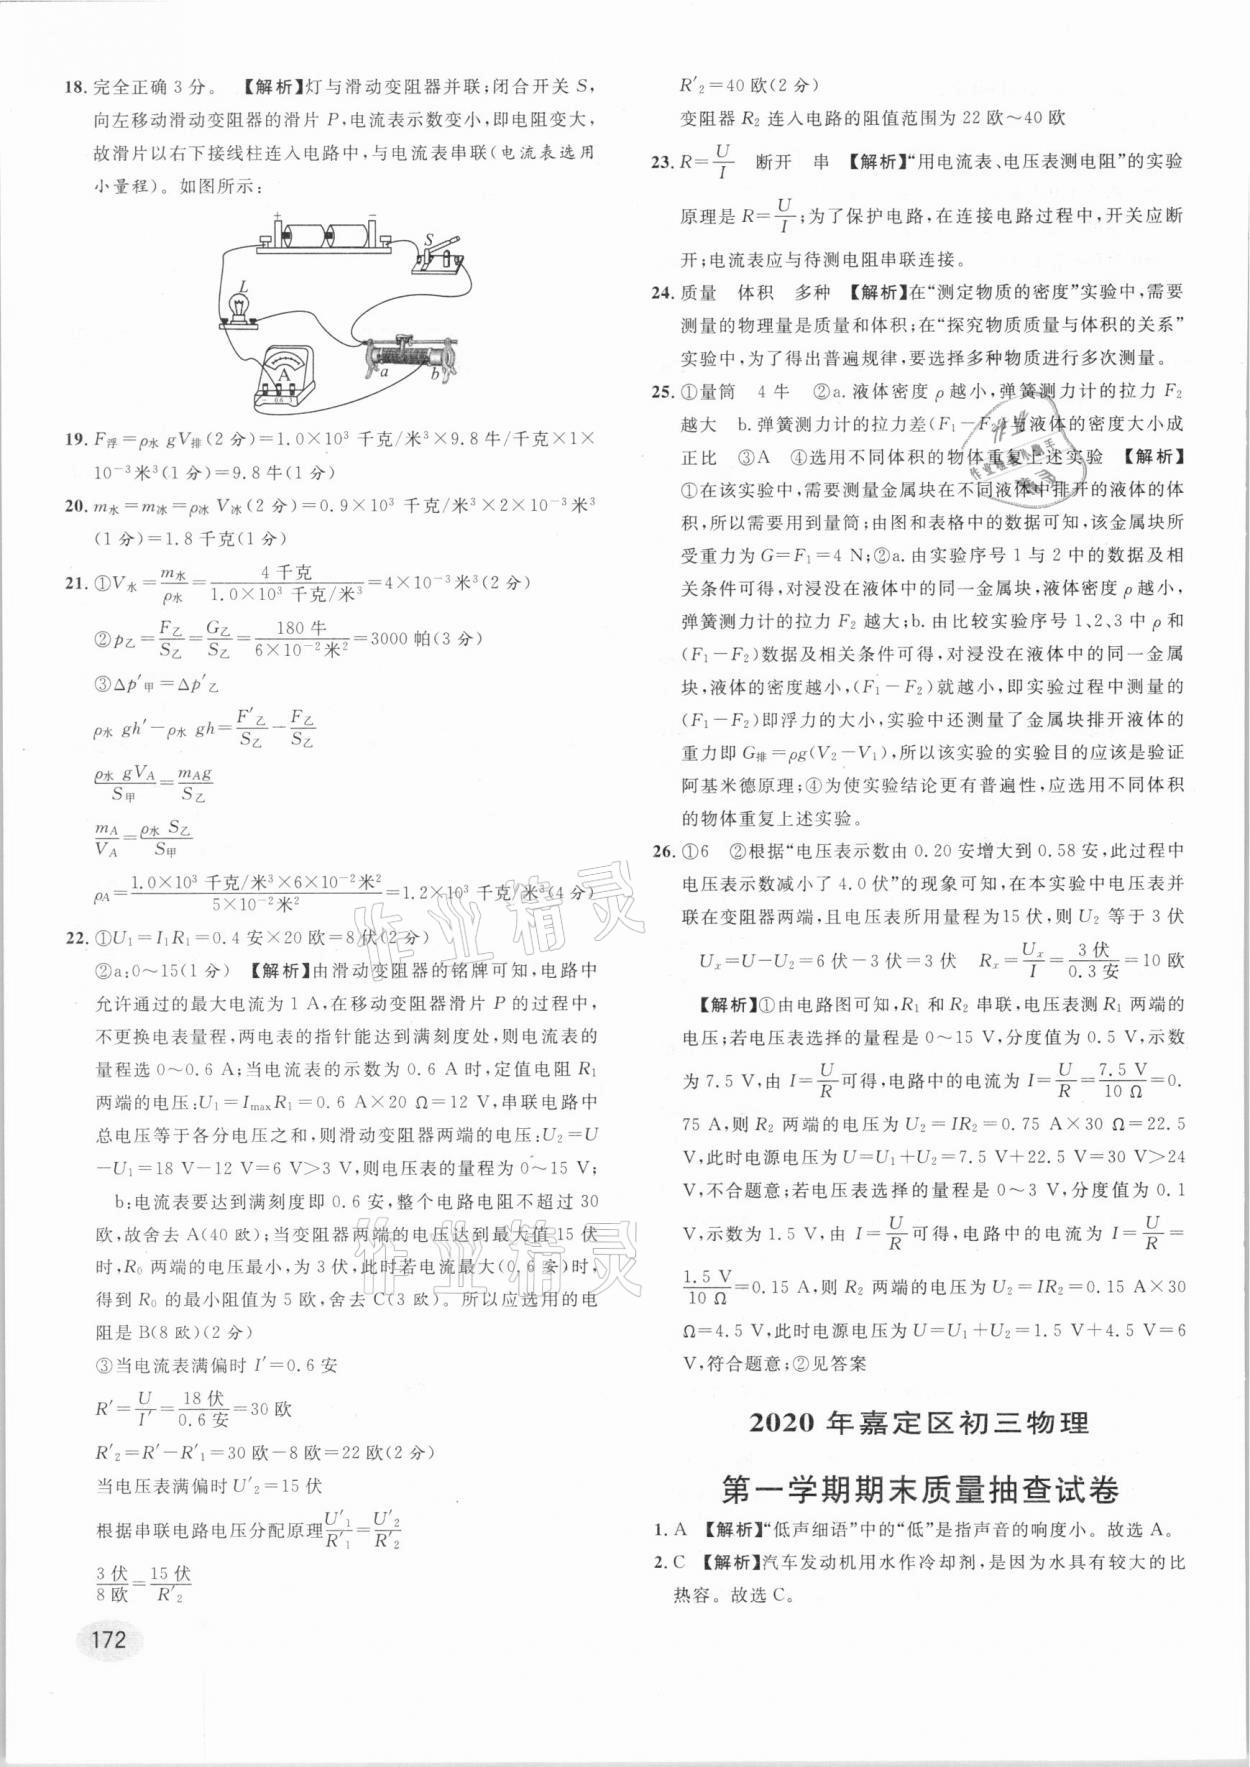 18. 完全正确3分。 【解析】灯与滑动变阻器并联;闭合开关 S,
向左移动滑动变阻器的滑片 P,电流表示数变小,即电阻变大,
故滑片以右下接线柱连入电路中,与电流表串联(电流表选用
小量程)。如图所示:
+ −
S
L
A
a b
− 0.6 3
19. F浮=ρ水 gV排(2分)=1.0×10³ 千克/米³×9.8牛/千克×1×
10⁻³米³(1分)=9.8牛(1分)
20. m水=m冰=ρ冰 V冰(2分)=0.9×10³ 千克/米³×2×10⁻³米³
(1分)=1.8千克(1分)
21. ①V水=m水/ρ水=4千克/1.0×10³ 千克/米³=4×10⁻³米³(2分)
②p乙=F乙/S乙=G乙/S乙=180牛/6×10⁻²米²=3000帕(3分)
③Δp′甲=Δp′乙
ρ水 gh′−ρ水 gh=F′乙/S乙−F乙/S乙
ρ水 gVA/S甲=mAg/S乙
mA/VA=ρ水 S乙/S甲
ρA=1.0×10³ 千克/米³×6×10⁻²米²/5×10⁻²米²=1.2×10³ 千克/米³(4分)
22. ①U₁=I₁R₁=0.4安×20欧=8伏(2分)
②a:0~15(1分) 【解析】由滑动变阻器的铭牌可知,电路中
允许通过的最大电流为1 A,在移动变阻器滑片 P 的过程中,
不更换电表量程,两电表的指针能达到满刻度处,则电流表的
量程选0~0.6 A;当电流表的示数为0.6 A时,定值电阻 R₁
两端的电压:U₁=ImaxR₁=0.6 A×20 Ω=12 V,串联电路中
总电压等于各分电压之和,则滑动变阻器两端的电压:U₂=U
−U₁=18 V−12 V=6 V>3 V,则电压表的量程为0~15 V;
b:电流表要达到满刻度即0.6安,整个电路电阻不超过30
欧,故舍去A(40欧);当变阻器两端的电压达到最大值15伏
时,R₀ 两端的电压最小,为3伏,此时若电流最大(0.6安)时,
得到 R₀ 的最小阻值为5欧,舍去C(3欧)。所以应选用的电
阻是B(8欧)(2分)
③当电流表满偏时 I′=0.6安
R′=U/I′=18伏/0.6安=30欧
R′₂=R′−R′₁=30欧−8欧=22欧(2分)
当电压表满偏时U′₂=15伏
根据串联电路电压分配原理U′₁/R′₁=U′₂/R′₂
3伏/8欧=15伏/R′₂
172
R′₂=40欧(2分)
变阻器 R₂ 连入电路的阻值范围为22欧~40欧
23. R=U/I 断开 串 【解析】“用电流表、电压表测电阻”的实验
原理是 R=U/I;为了保护电路,在连接电路过程中,开关应断
开;电流表应与待测电阻串联连接。
24. 质量 体积 多种 【解析】在“测定物质的密度”实验中,需要
测量的物理量是质量和体积;在“探究物质质量与体积的关系”
实验中,为了得出普遍规律,要选择多种物质进行多次测量。
25. ①量筒 4牛 ②a.液体密度 ρ 越小,弹簧测力计的拉力 F₂
越大 b.弹簧测力计的拉力差(F₁−F₂)与液体的密度大小成
正比 ③A ④选用不同体积的物体重复上述实验 【解析】
①在该实验中,需要测量金属块在不同液体中排开的液体的体
积,所以需要用到量筒;由图和表格中的数据可知,该金属块所
受重力为 G=F₁=4 N;②a.由实验序号1与2中的数据及相
关条件可得,对浸没在液体中的同一金属块,液体密度 ρ 越小,
弹簧测力计的拉力 F₂ 越大;b.由比较实验序号1、2、3中 ρ 和
(F₁−F₂)数据及相关条件可得,对浸没在液体中的同一金属
块,液体的密度越小,(F₁−F₂)就越小,即实验过程中测量的
(F₁−F₂)即浮力的大小,实验中还测量了金属块排开液体的
重力即 G排=ρg(V₂−V₁),所以该实验的实验目的应该是验证
阿基米德原理;④为使实验结论更有普遍性,应选用不同体积
的物体重复上述实验。
26. ①6 ②根据“电压表示数由0.20安增大到0.58安,此过程中
电压表示数减小了4.0伏”的现象可知,在本实验中电压表并
联在变阻器两端,且电压表所用量程为15伏,则 U₂ 等于3伏
Uₓ=U−U₂=6伏−3伏=3伏 Rₓ=Uₓ/I=3伏/0.3安=10欧
【解析】①由电路图可知,R₁ 和 R₂ 串联,电压表测 R₁ 两端的
电压;若电压表选择的量程是0~15 V,分度值为0.5 V,示数
为7.5 V,由 I=U/R可得,电路中的电流为 I=U/R=7.5 V/10 Ω=0.
75 A,则 R₂ 两端的电压为 U₂=IR₂=0.75 A×30 Ω=22.5
V,此时电源电压为 U=U₁+U₂=7.5 V+22.5 V=30 V>24
V,不合题意;若电压表选择的量程是0~3 V,分度值为0.1
V,示数为1.5 V,由 I=U/R可得,电路中的电流为 I=U/R=
1.5 V/10 Ω=0.15 A,则 R₂ 两端的电压为 U₂=IR₂=0.15 A×30
Ω=4.5 V,此时电源电压为 U=U₁+U₂=1.5 V+4.5 V=6
V,符合题意;②见答案
2020年嘉定区初三物理
第一学期期末质量抽查试卷
1. A 【解析】“低声细语”中的“低”是指声音的响度小。故选A。
2. C 【解析】汽车发动机用水作冷却剂,是因为水具有较大的比
热容。故选C。
作业精灵
作业精灵